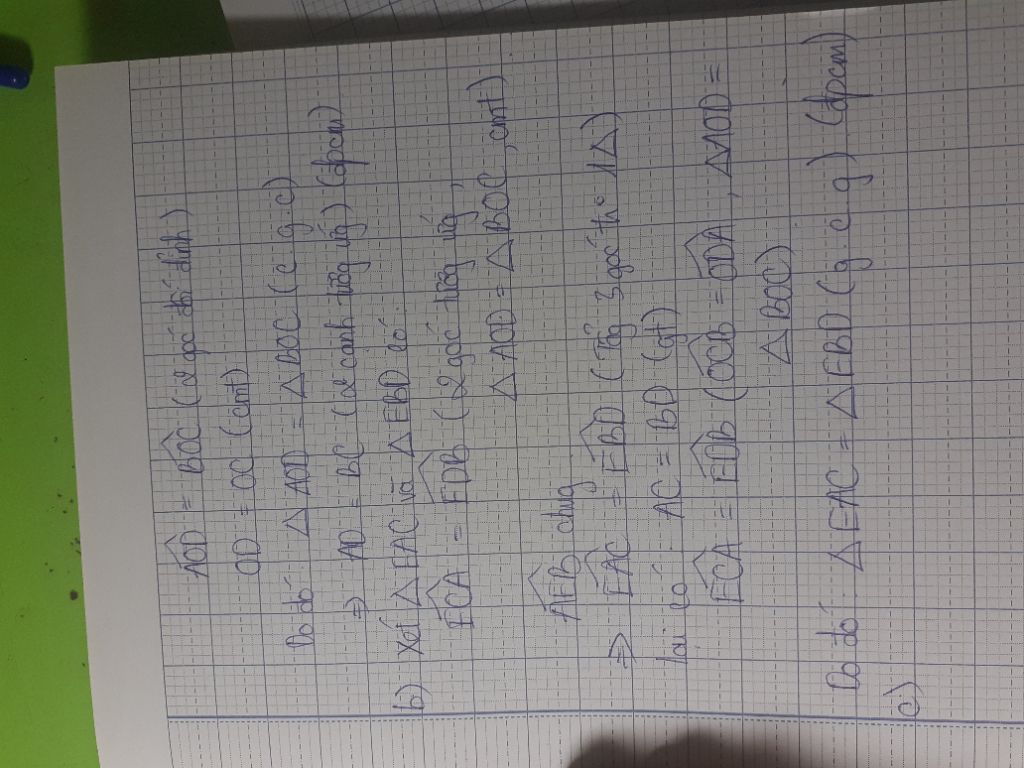 AOD = BOC (2 góc đối đỉnh)
OD = OC (cmt)
Do đó △ AOD = △ BOC (c.g.c)
=> AD = BC (2 cạnh tương ứng) (đpcm)
b) Xét △ EAC và △ EBD có:
ECA = EDB (2 góc tương ứng,
△ AOD = △ BOC, cmt)
AEB chung
=> EAC = EBD (Tổng 3 góc 1△)
Lại có AC = BD (gt)
ECA = EDB (OCB = ODA, △AOD =
△ BOC)
Do đó △ EAC = △ EBD (g.c.g) (đpcm)
c)